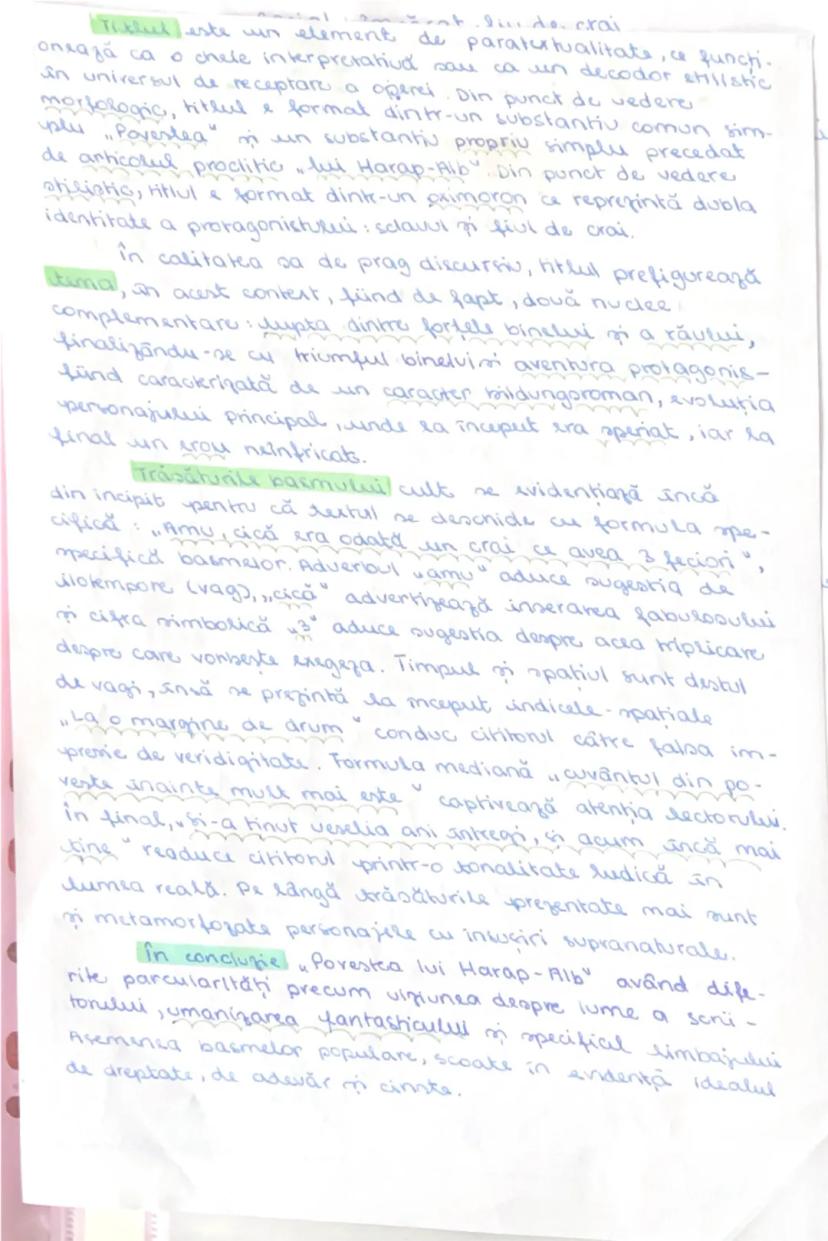 lui de crai
Titlul este un element de paratextualitate, ce funcți-
onează ca o cheie interpretativă sau ca un decodor stilistic
în universul de receptare a operei. Din punct de vedere
morfologic, titlul e format dintr-un substantiv comun sim-
plu „Povestea" și un substantiv propriu simplu precedat
de articolul proclitic „lui Harap-Alb". Din punct de vedere
stilistic, titlul e format dintr-un oximoron ce reprezintă dubla
identitate a protagonistului: sclavul și fiul de crai.
În calitatea sa de prag discursiv, titlul prefigurează
tema, în acest context, fiind de fapt, două nuclee
complementare: lupta dintre forțele binelui și a răului,
finalizându-se cu triumful binelui și aventura protagonis-
fiind caracterizată de un caracter bildungsroman, evoluția
personajului principal, unde la început era speriat, iar la
final un erou neînfricats.
Trăsăturile basmului cult se evidențiază încă
din incipit pentru că textul se deschide cu formula spe-
cifică: „Amu, cică era odată un crai ce avea 3 feciori",
specifică basmelor. Adverbul „amu" aduce sugestia de
illotempore (vag), „cică" advertizează inserarea fabulosului
și cifra simbolică „3" aduce sugestia despre acea triplicare
despre care vorbește exegeza. Timpul și spațiul sunt destul
de vagi, însă se prezintă la început indicele-spațiale
„La o margine de drum" conduc cititorul către falsa im-
presie de veridigitate. Formula mediană „cuvântul din po-
veste înainte mult mai este" captivează atenția lectorului.
În final, „Și-a ținut veselia ani întregi, și acum încă mai
ține" readuce cititorul printr-o tonalitate ludică în
lumea reală. Pe lângă trăsăturile prezentate mai sunt
și metamorfozate personajele cu însușiri supranaturale.
În concluzie „Povestea lui Harap-Alb" având dife-
rite parcularități precum viziunea despre lume a scrii-
torului, umanizarea fantasticului și specificul limbajului
Asemenea basmelor populare, scoate în evidență idealul
de dreptate, de adevăr și cinste.